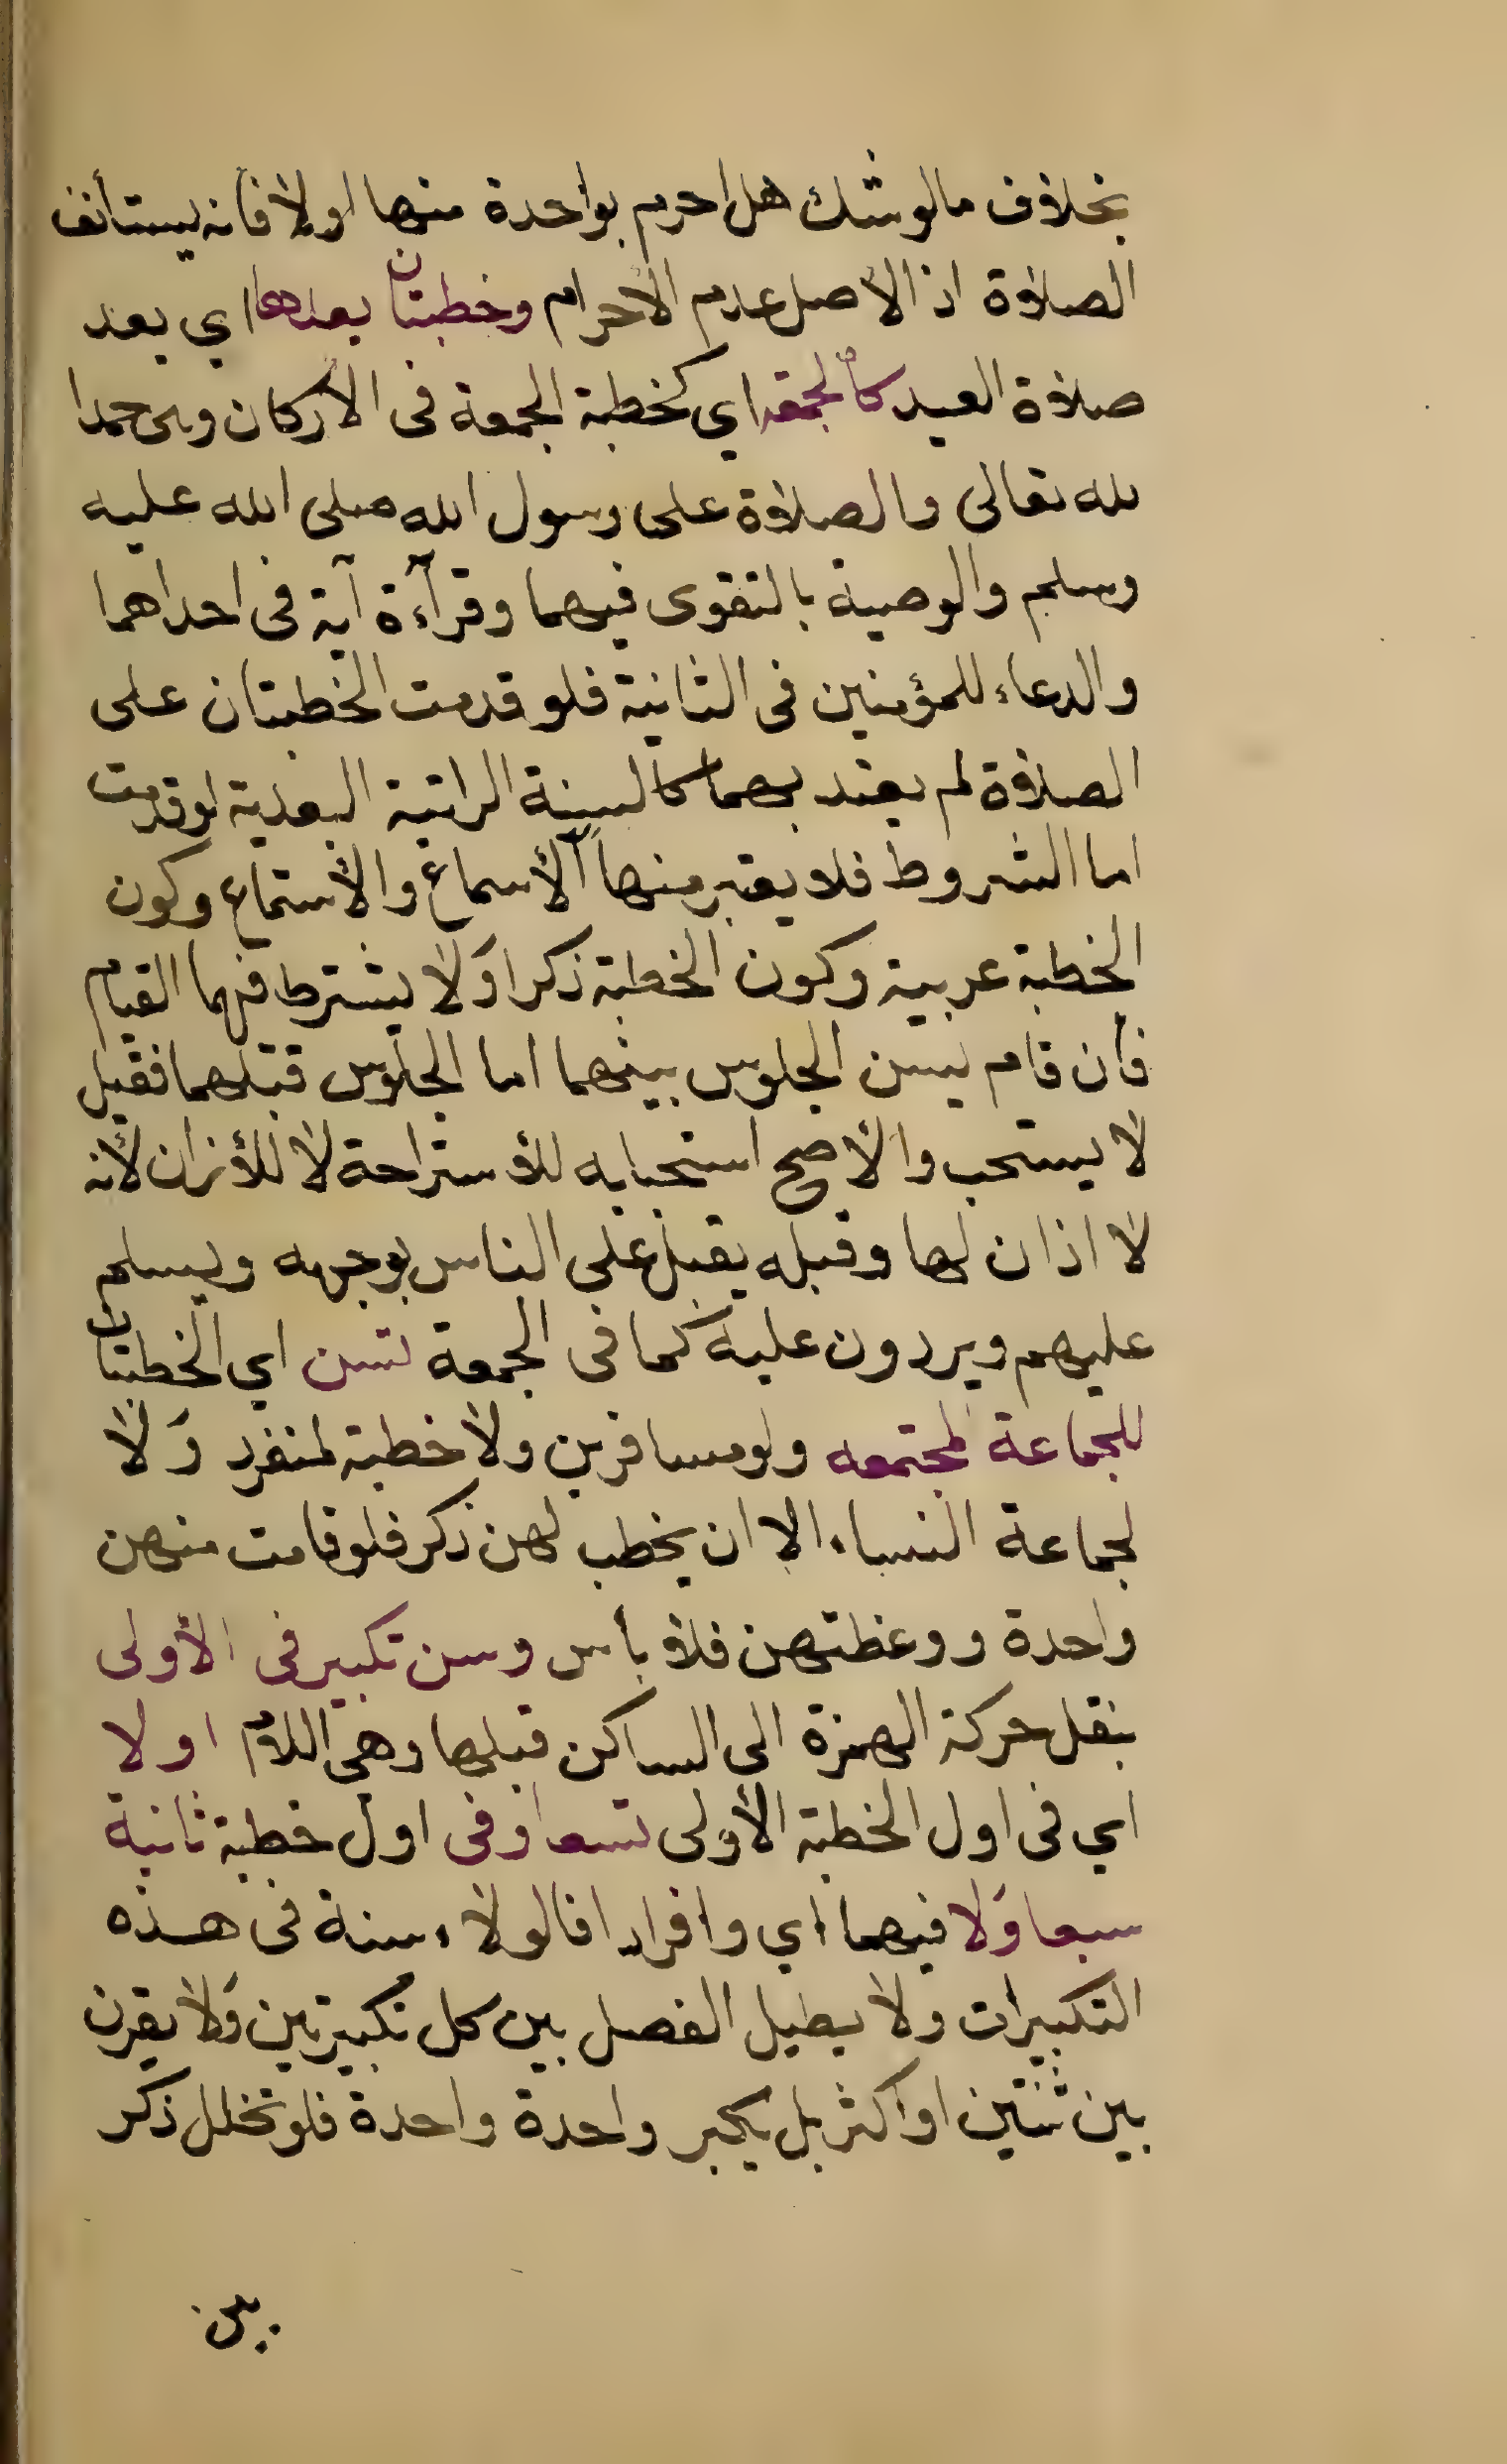 بخلاف مالوشك هل احرم بواحدة منها اولا فانه يستأنف
الصلاة اذ الأصل عدم الاحرام وخطبتان بعدها اي بعد
صلاة العيد كالجمعة اي كخطبة الجمعة فى الأركان وهى حمدا
لله تعالى والصلاة على رسول الله صلى الله عليه
وسلم والوصية بالتقوى فيهما وقرآءة آية فى احداهما
والدعاء للمؤمنين فى الثانية فلو قدمت الخطبتان على
الصلاة لم يعتد بهما كالسنة الراتبة البعدية لوقدمت
اما الشروط فلا يعتبر منها الّا الأسماع والأستماع وكون
الخطبة عربية وكون الخطبة ذكرا ولا يشترط فيهما القيام
فان قام يسن الجلوس بينهما اما الجلوس قبلهما فقيل
لا يستحب والأصح استحبابه للأستراحة لا للأذان لأنه
لا اذان لها وقبله يقبل على الناس بوجهه ويسلم
عليهم ويردون عليه كما فى الجمعة تسن اي الخطبتان
للجماعة المجتمعه ولو مسافرين ولا خطبة لمنفرد ولا
لجماعة النساء الا ان يخطب لهن ذكر فلو قامت منهن
واحدة ووعظتهن فلا بأس وسن تكبير فى الأولى
بنقل حركة الهمزة الى الساكن قبلها وهى اللام اولا
اي فى اول الخطبة الأولى تسعا وفى اول خطبة ثانية
سبعا ولا فيهما اي وافرادا فالولاء سنة فى هذه
التكبيرات ولا يطيل الفصل بين كل تكبيرتين ولا يقرن
بين ثنتين او اكثر بل يكبر واحدة واحدة فلو تخلل ذكر
بين